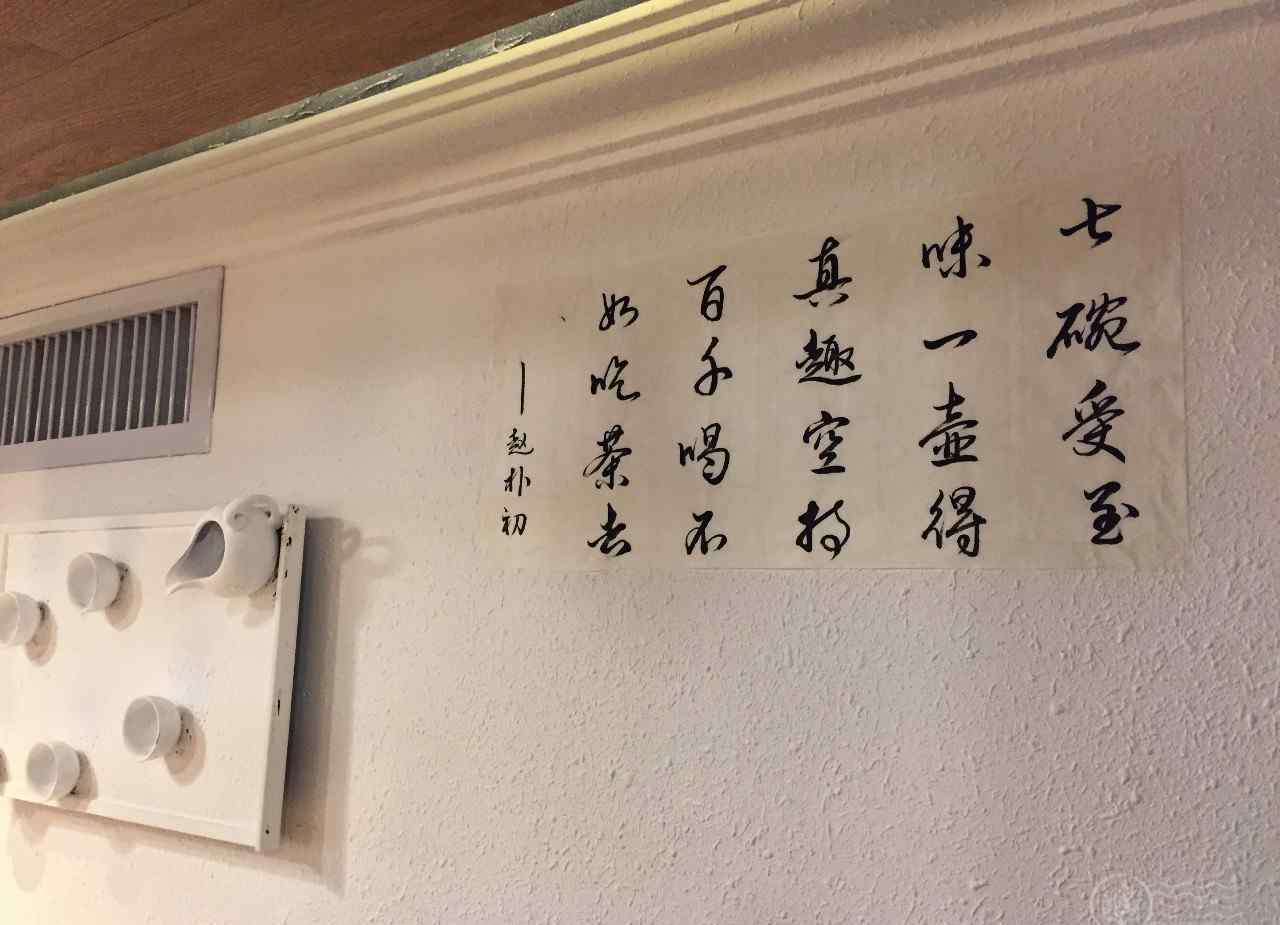 七碗受至
味一壶得
真趣空持
百千喝不
如吃茶去
—赵朴初